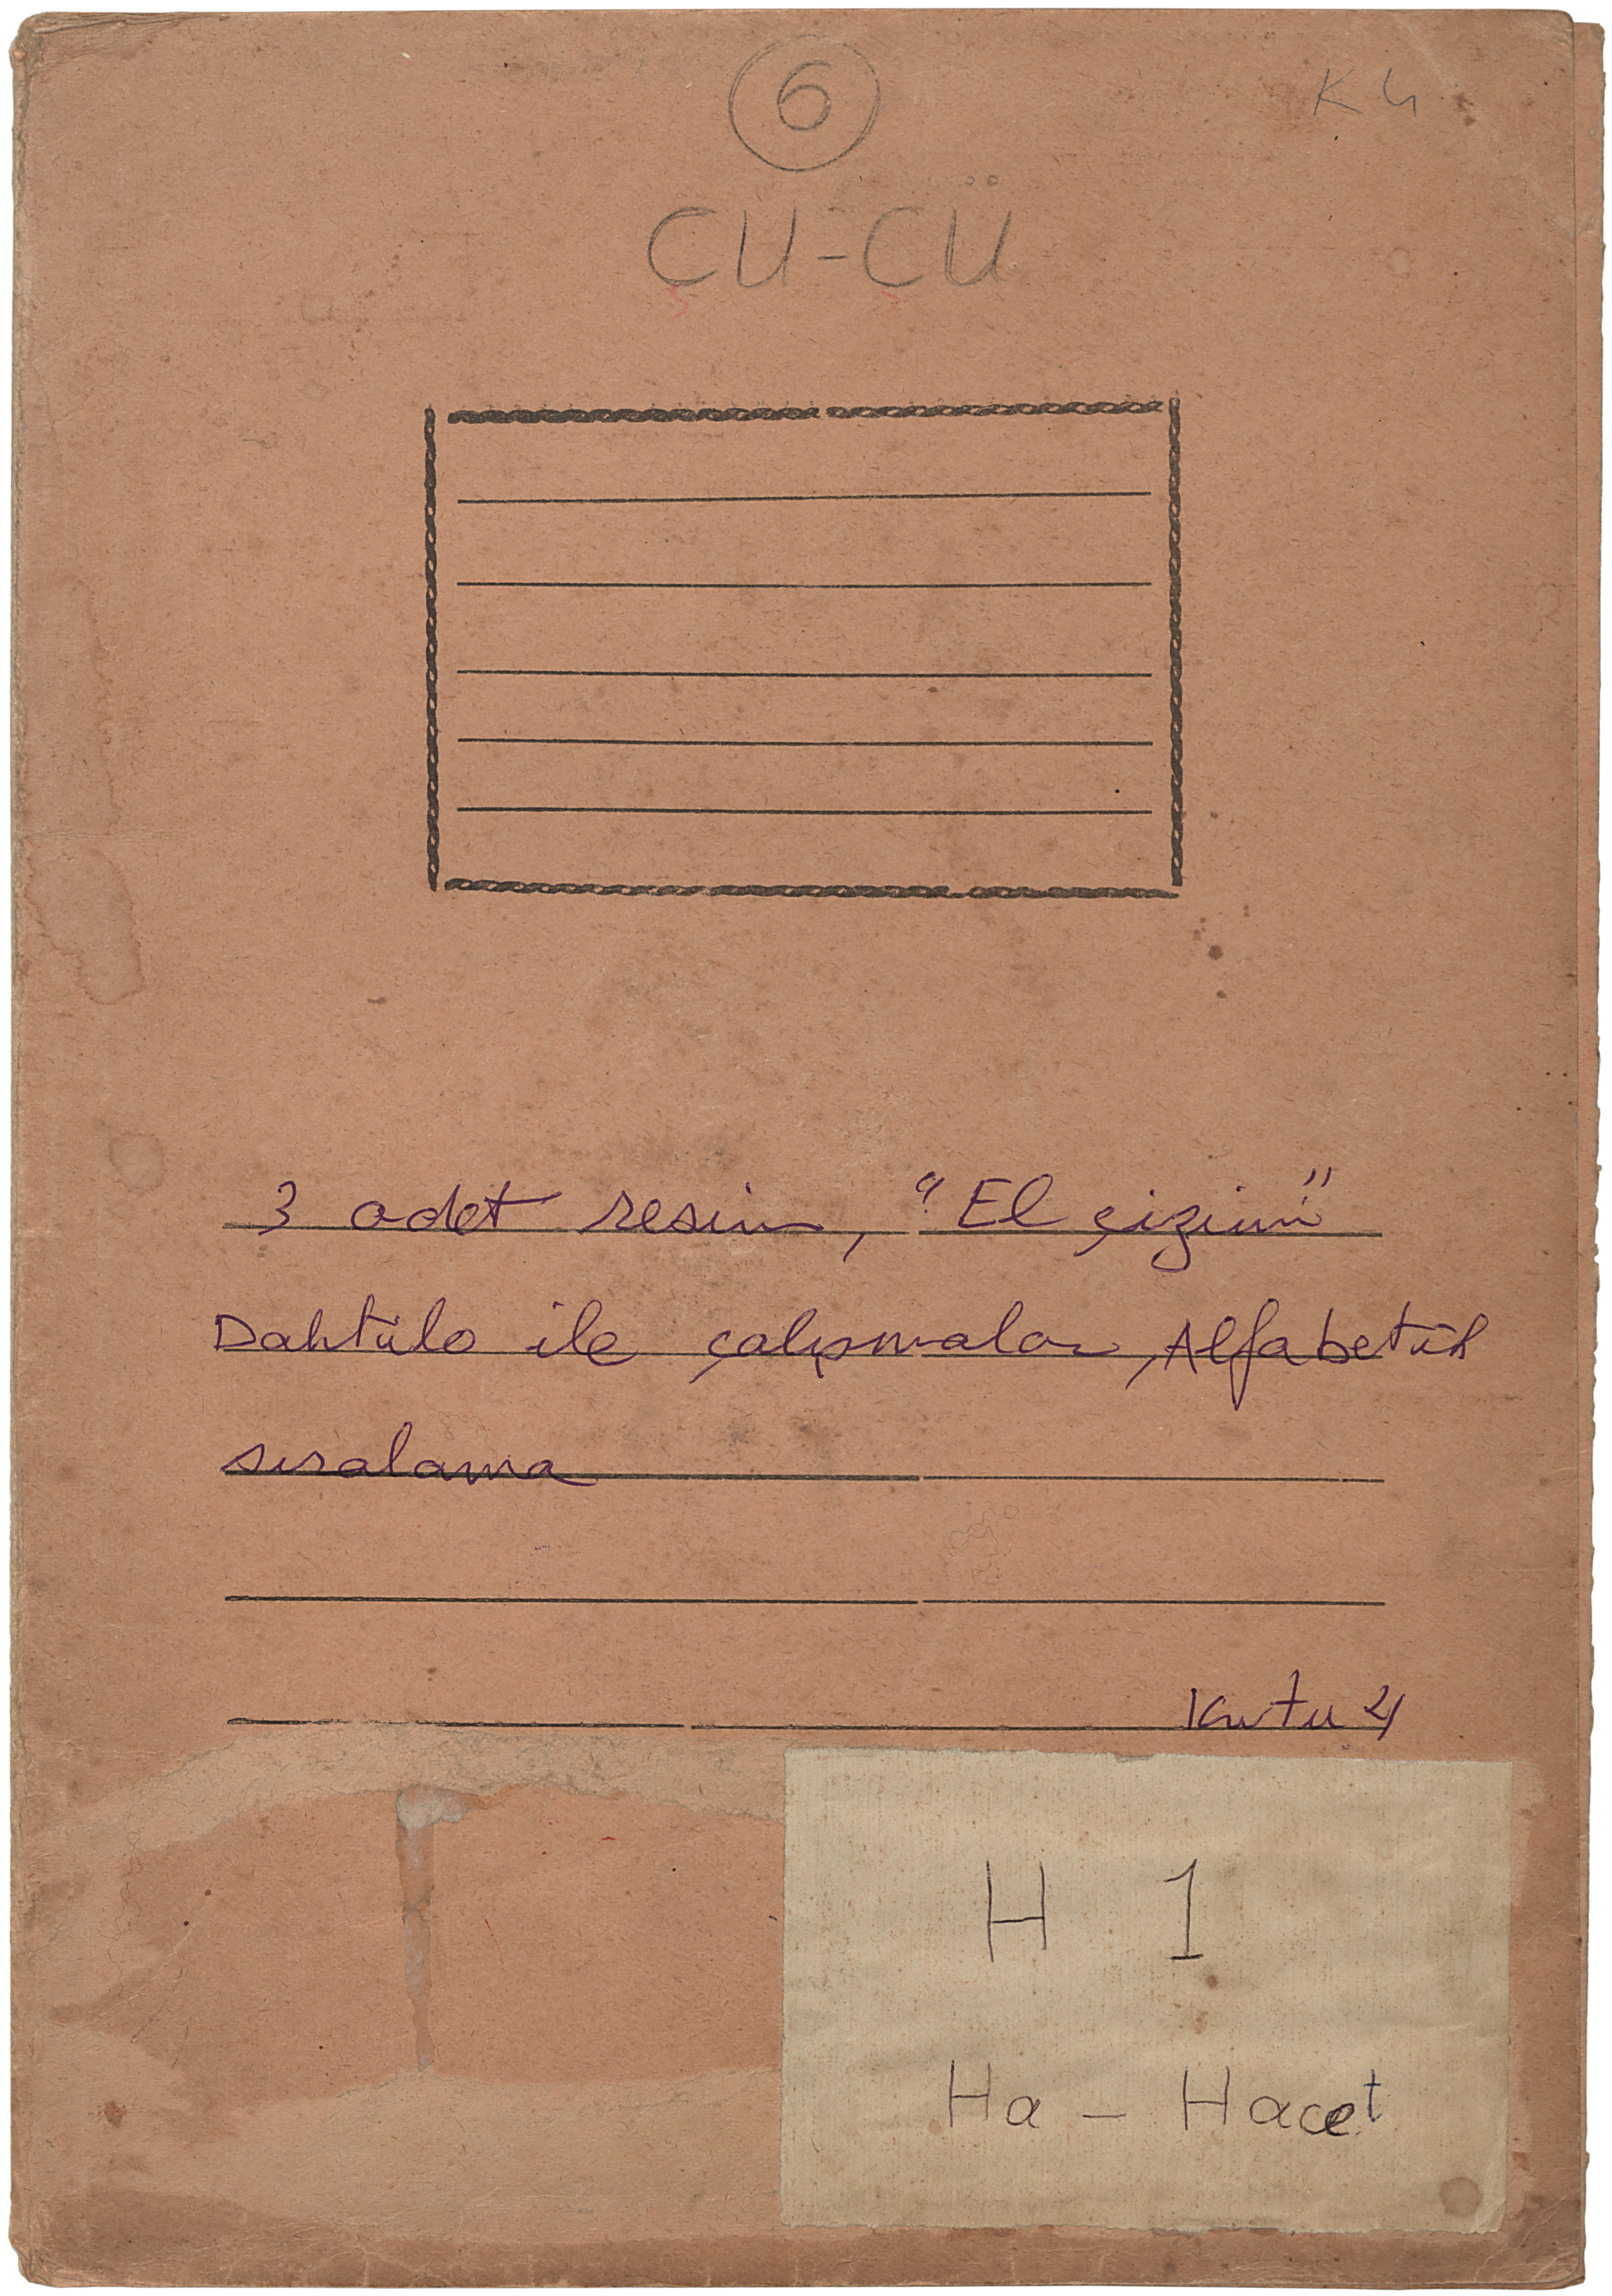 6
K 4
ÇU-ÇÜ
3 adet resim, "El çizimi"
Daktilo ile çalışmalar, Alfabetik
sıralama
Kutu 4
H 1
Ha – Hacet